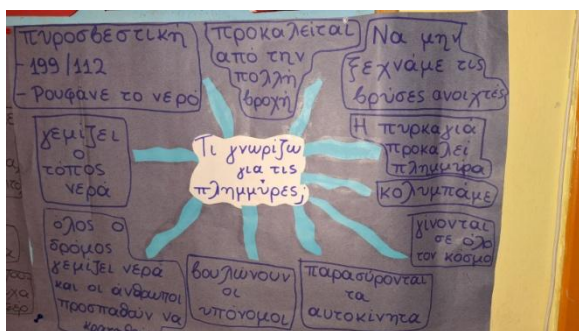 πυροσβεστική
- 199/112
- Ρουφάνε το νερό
προκαλείται
από την
πολλή
βροχή
Να μην
ξεχνάμε τις
βρύσες ανοιχτές
γεμίζει
ο
τόπος
νερά
Τι γνωρίζω
για τις
πλημμύρες;
Η πυρκαγιά
προκαλεί
πλημμύρα
κολυμπάμε
γίνονται
σε όλο
τον κόσμο
όλος ο
δρόμος
γεμίζει νερά
και οι άνθρωποι
προσπαθούν να
βουλώνουν
οι
υπόνομοι
παρασύρονται
τα
αυτοκίνητα